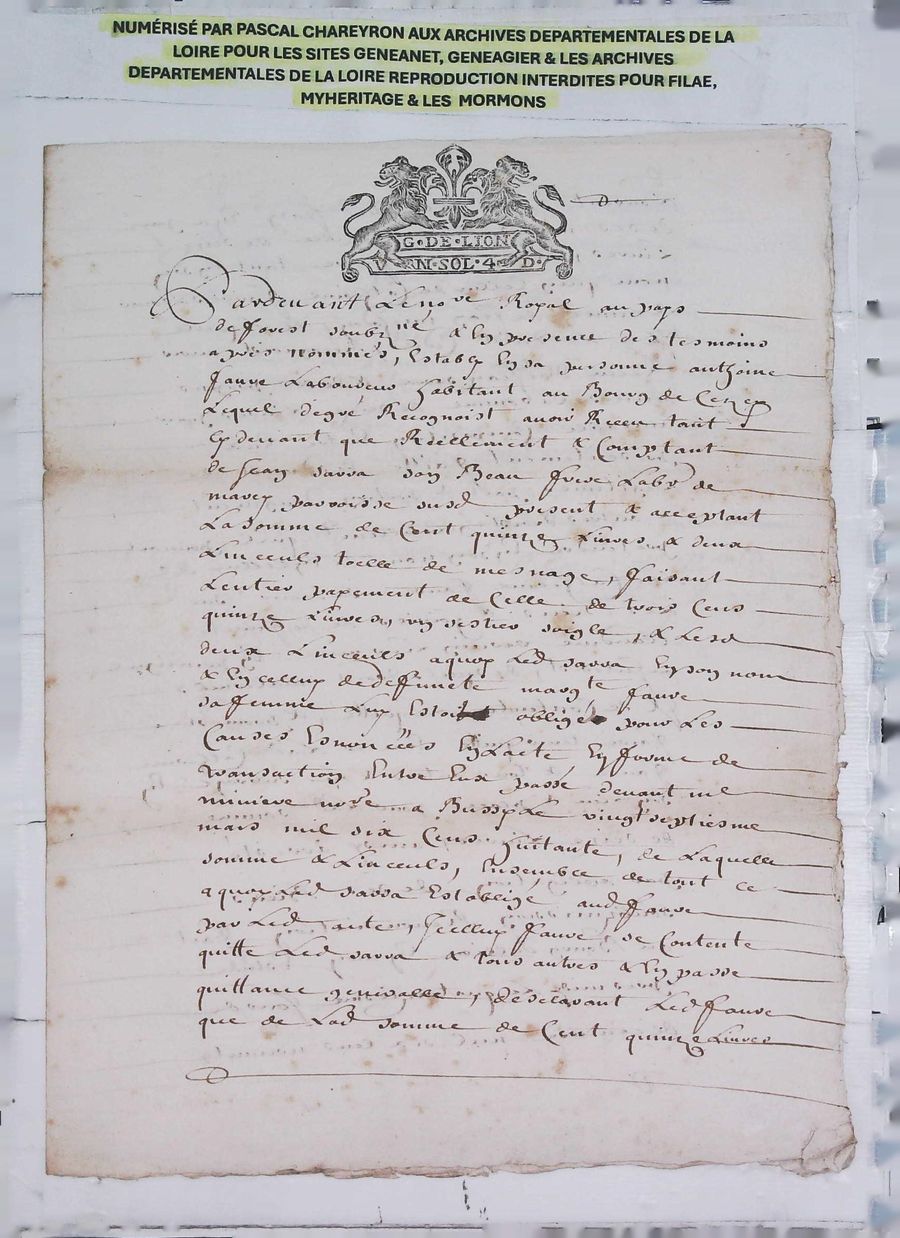 NUMÉRISÉ PAR PASCAL CHAREYRON AUX ARCHIVES DEPARTEMENTALES DE LA
LOIRE POUR LES SITES GENEANET, GENEAGIER & LES ARCHIVES
DEPARTEMENTALES DE LA LOIRE REPRODUCTION INTERDITES POUR FILAE,
MYHERITAGE & LES MORMONS
G·DE·LION
V RN·SOL·4 D·
Pardevant Le no.re Royal au pays
de forest soubz.né & en presence des tesmoins
apres nommés, Estably en sa personne anthoine
faure Laboureur habitant au Bourg de
Lequel de gré Recognoist avoir Receu tant
cy devant que Réellement & Comptant
de Jean sarra son Beau frere Lab.r de
marey parroisse susd present & acceptant
La somme de Cent quinze Livres & deux
Linceuls toelle de mesnage, faisant
Lentier payement de Celle de trois Cens
quinze Livres, un sestier soigle, & Lesd
deux Linceuls a quoy Led sarra en son nom
& en celluy de deffuncte marg.te faure
sa femme Luy Estoit obligé pour Les
Causes Enoncées en Lacte en forme de
transaction Entre Eux passé devant me
miniere no.re a Bussy Le vingt septiesme
mars mil six Cens huitante, de Laquelle
somme & Linceuls, Ensemble de tout ce
a quoy Led sarra Est obligé aud faure
par Led acte, Icelluy faure se Contente
quitte Led sarra & tous autres & en passe
quittance generalle, desclarant Led faure
que de Lad somme de Cent quinze Livres